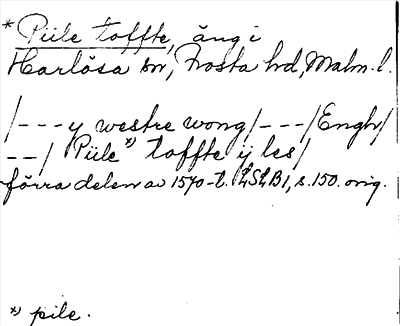 * Piile toffte, äng i
Harlösa sn, Frosta hd, Malm. l.
/---y westre wong/---/Engh/
--/ Piile*) toffte ij les/
förra delen av 1570-t. LSLB1, s. 150. orig.
*) pile.